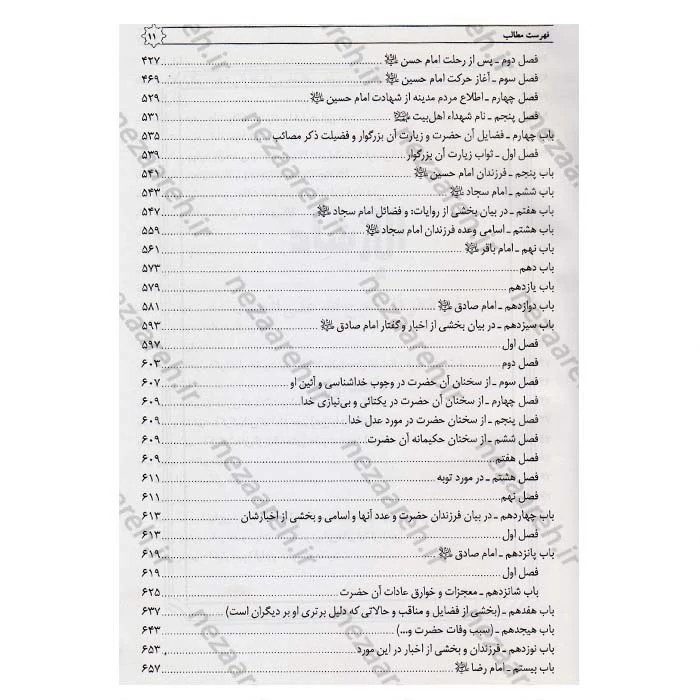 فهرست مطالب ۱۱
فصل دوم ـ پس از رحلت امام حسن ۴۲۷
فصل سوم ـ آغاز حرکت امام حسین ۴۶۹
فصل چهارم ـ اطلاع مردم مدینه از شهادت امام حسین ۵۲۹
فصل پنجم ـ نام شهداء اهل‌بیت ۵۳۱
باب چهارم ـ فضایل آن حضرت و زیارت آن بزرگوار و فضیلت ذکر مصائب ۵۳۵
فصل اول ـ ثواب زیارت آن بزرگوار ۵۳۹
باب پنجم ـ فرزندان امام حسین ۵۴۱
باب ششم ـ امام سجاد ۵۴۳
باب هفتم ـ در بیان بخشی از روایات؛ و فضائل امام سجاد ۵۴۷
باب هشتم ـ اسامی وعده فرزندان امام سجاد ۵۵۹
باب نهم ـ امام باقر ۵۶۱
باب دهم ۵۷۳
باب یازدهم ۵۷۹
باب دوازدهم ـ امام صادق ۵۸۱
باب سیزدهم ـ در بیان بخشی از اخبار و گفتار امام صادق ۵۹۳
فصل اول ۵۹۷
فصل دوم ۶۰۳
فصل سوم ـ از سخنان آن حضرت در وجوب خداشناسی و آئین او ۶۰۷
فصل چهارم ـ از سخنان آن حضرت در یکتائی و بی‌نیازی خدا ۶۰۹
فصل پنجم ـ از سخنان حضرت در مورد عدل خدا ۶۰۹
فصل ششم ـ از سخنان حکیمانه آن حضرت ۶۰۹
فصل هفتم ۶۰۹
فصل هشتم ـ در مورد توبه ۶۱۱
فصل نهم ۶۱۱
باب چهاردهم ـ در بیان فرزندان حضرت و عدد آنها و اسامی و بخشی از اخبارشان ۶۱۳
فصل اول ۶۱۳
باب پانزدهم ـ امام صادق ۶۱۹
فصل اول ۶۱۹
باب شانزدهم ـ معجزات و خوارق عادات آن حضرت ۶۲۵
باب هفدهم ـ (بخشی از فضایل و مناقب و حالاتی که دلیل برتری او بر دیگران است) ۶۳۷
باب هیجدهم ـ (سبب وفات حضرت و...) ۶۴۳
باب نوزدهم ـ فرزندان و بخشی از اخبار در این مورد ۶۵۳
باب بیستم ـ امام رضا ۶۵۷
nezaareh.ir